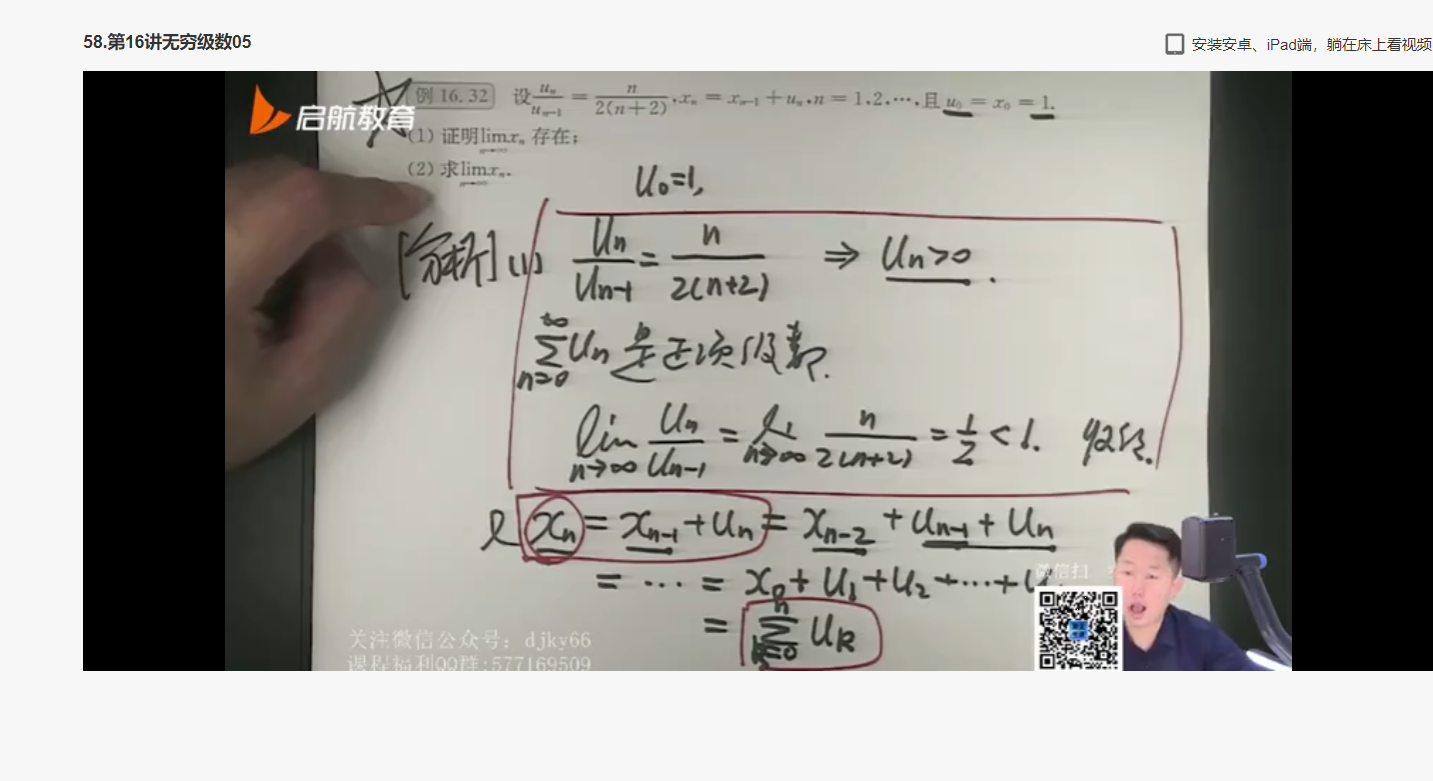 58.第16讲无穷级数05
安装安卓、iPad端，躺在床上看视频
启航教育
例 16.32 设 u_n/u_{n-1} = n/2(n+2), x_n = x_{n-1} + u_n, n = 1,2,⋯, 且 u_0 = x_0 = 1.
(1) 证明 lim_{n→∞} x_n 存在;
(2) 求 lim_{n→∞} x_n.
u_0=1,
[分析] (1) u_n/u_{n-1} = n/2(n+2) ⇒ u_n>0.
∑_{n=0}^{+∞} u_n 是正项级数.
lim_{n→∞} u_n/u_{n-1} = lim_{n→∞} n/2(n+2) = 1/2 < 1. 收敛.
x_n = x_{n-1} + u_n = x_{n-2} + u_{n-1} + u_n
= ⋯ = x_0 + u_1 + u_2 + ⋯ + u
= ∑_{k=0}^{n} u_k
微信扫
关注微信公众号: djky66
课程福利QQ群:577169509